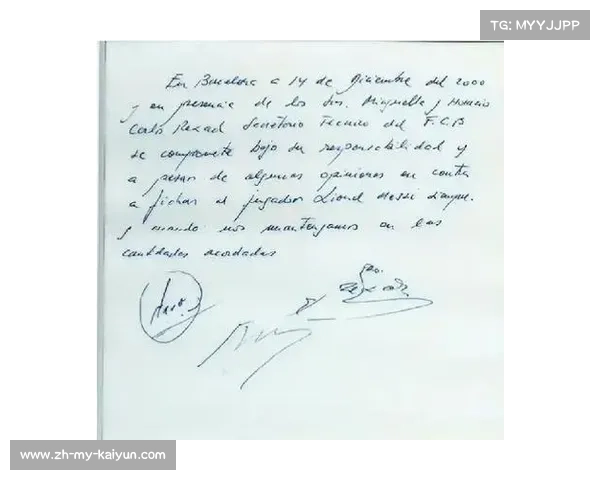 TG: MYYJJPP
En Barcelona a 14 de Diciembre del 2000
y en presencia de los Srs. Minguella y Horacio
Carlos Rexach Secretario Técnico del F.C.B
se compromete bajo su responsabilidad y
a pesar de algunas opiniones en contra
a fichar al jugador Lionel Messi siempre
y cuando nos mantengamos en las
cantidades acordadas
www.zh-my-kaiyun.com